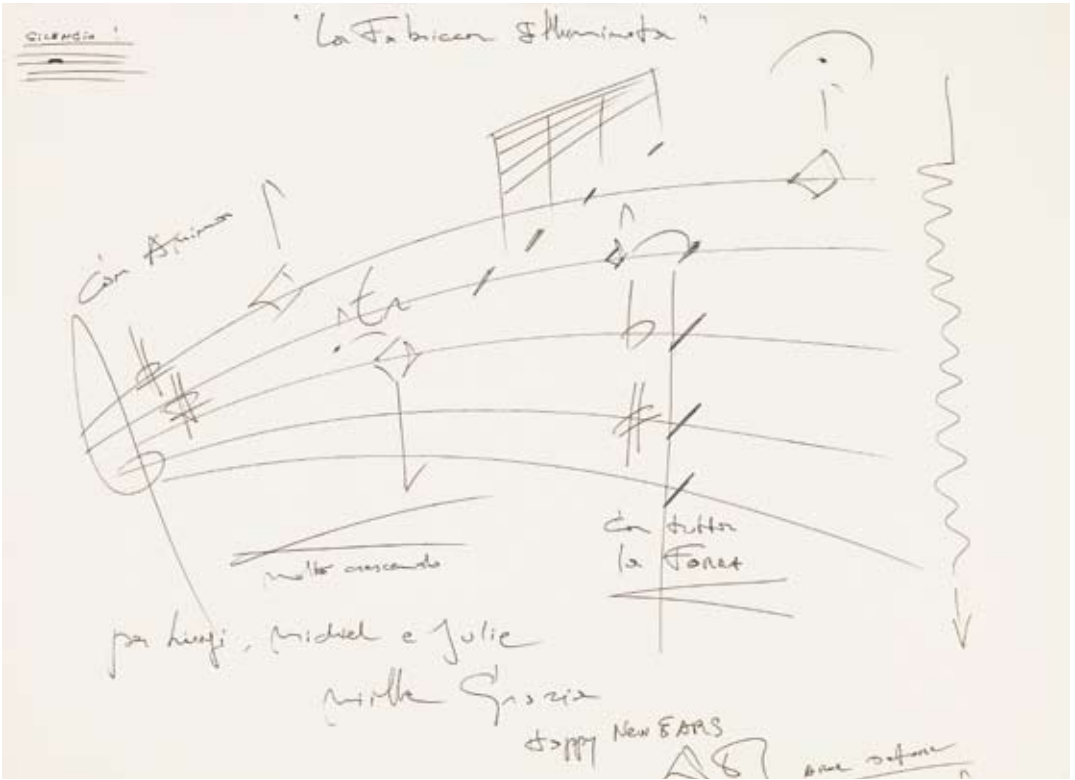 SILENZIO !
"La Fabbrica Illuminata"
Con Anima
tr
molto crescendo
Con tutta
la FORZA
per Luigi, Michel e Julie
mille Grazie
Happy New EARS